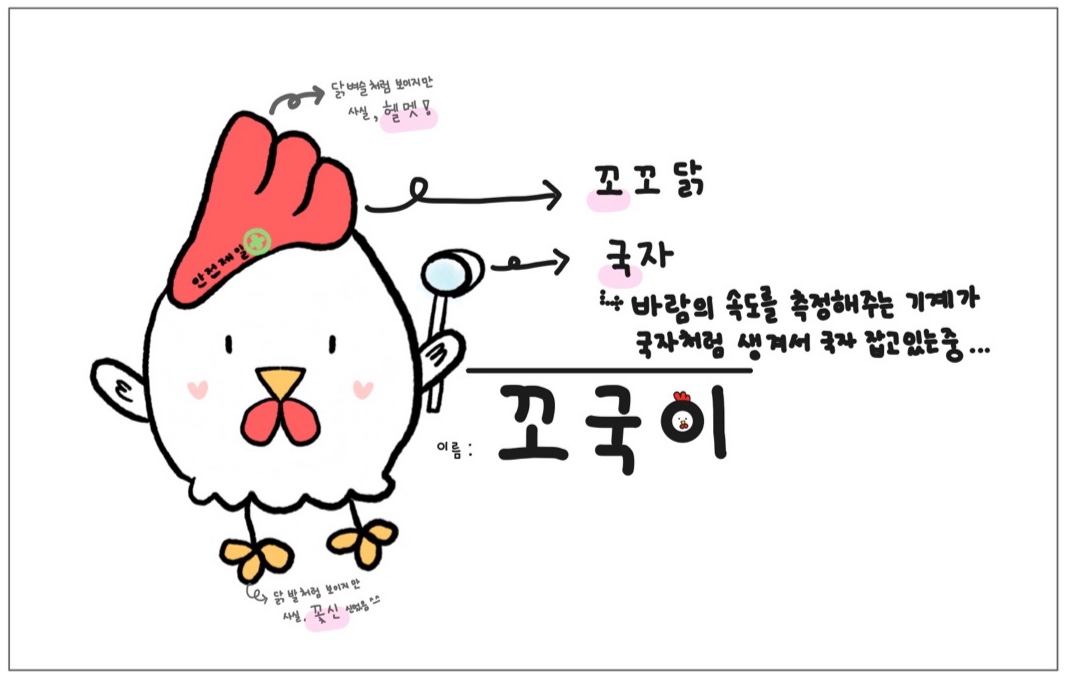 닭벼슬처럼 보이지만
사실, 헬멧!
꼬꼬닭
안전제일
국자
바람의 속도를 측정해주는 기계가
국자처럼 생겨서 국자 잡고있는중...
이름: 꼬국이
닭발처럼 보이지만
사실, 꽃신 신었음^^